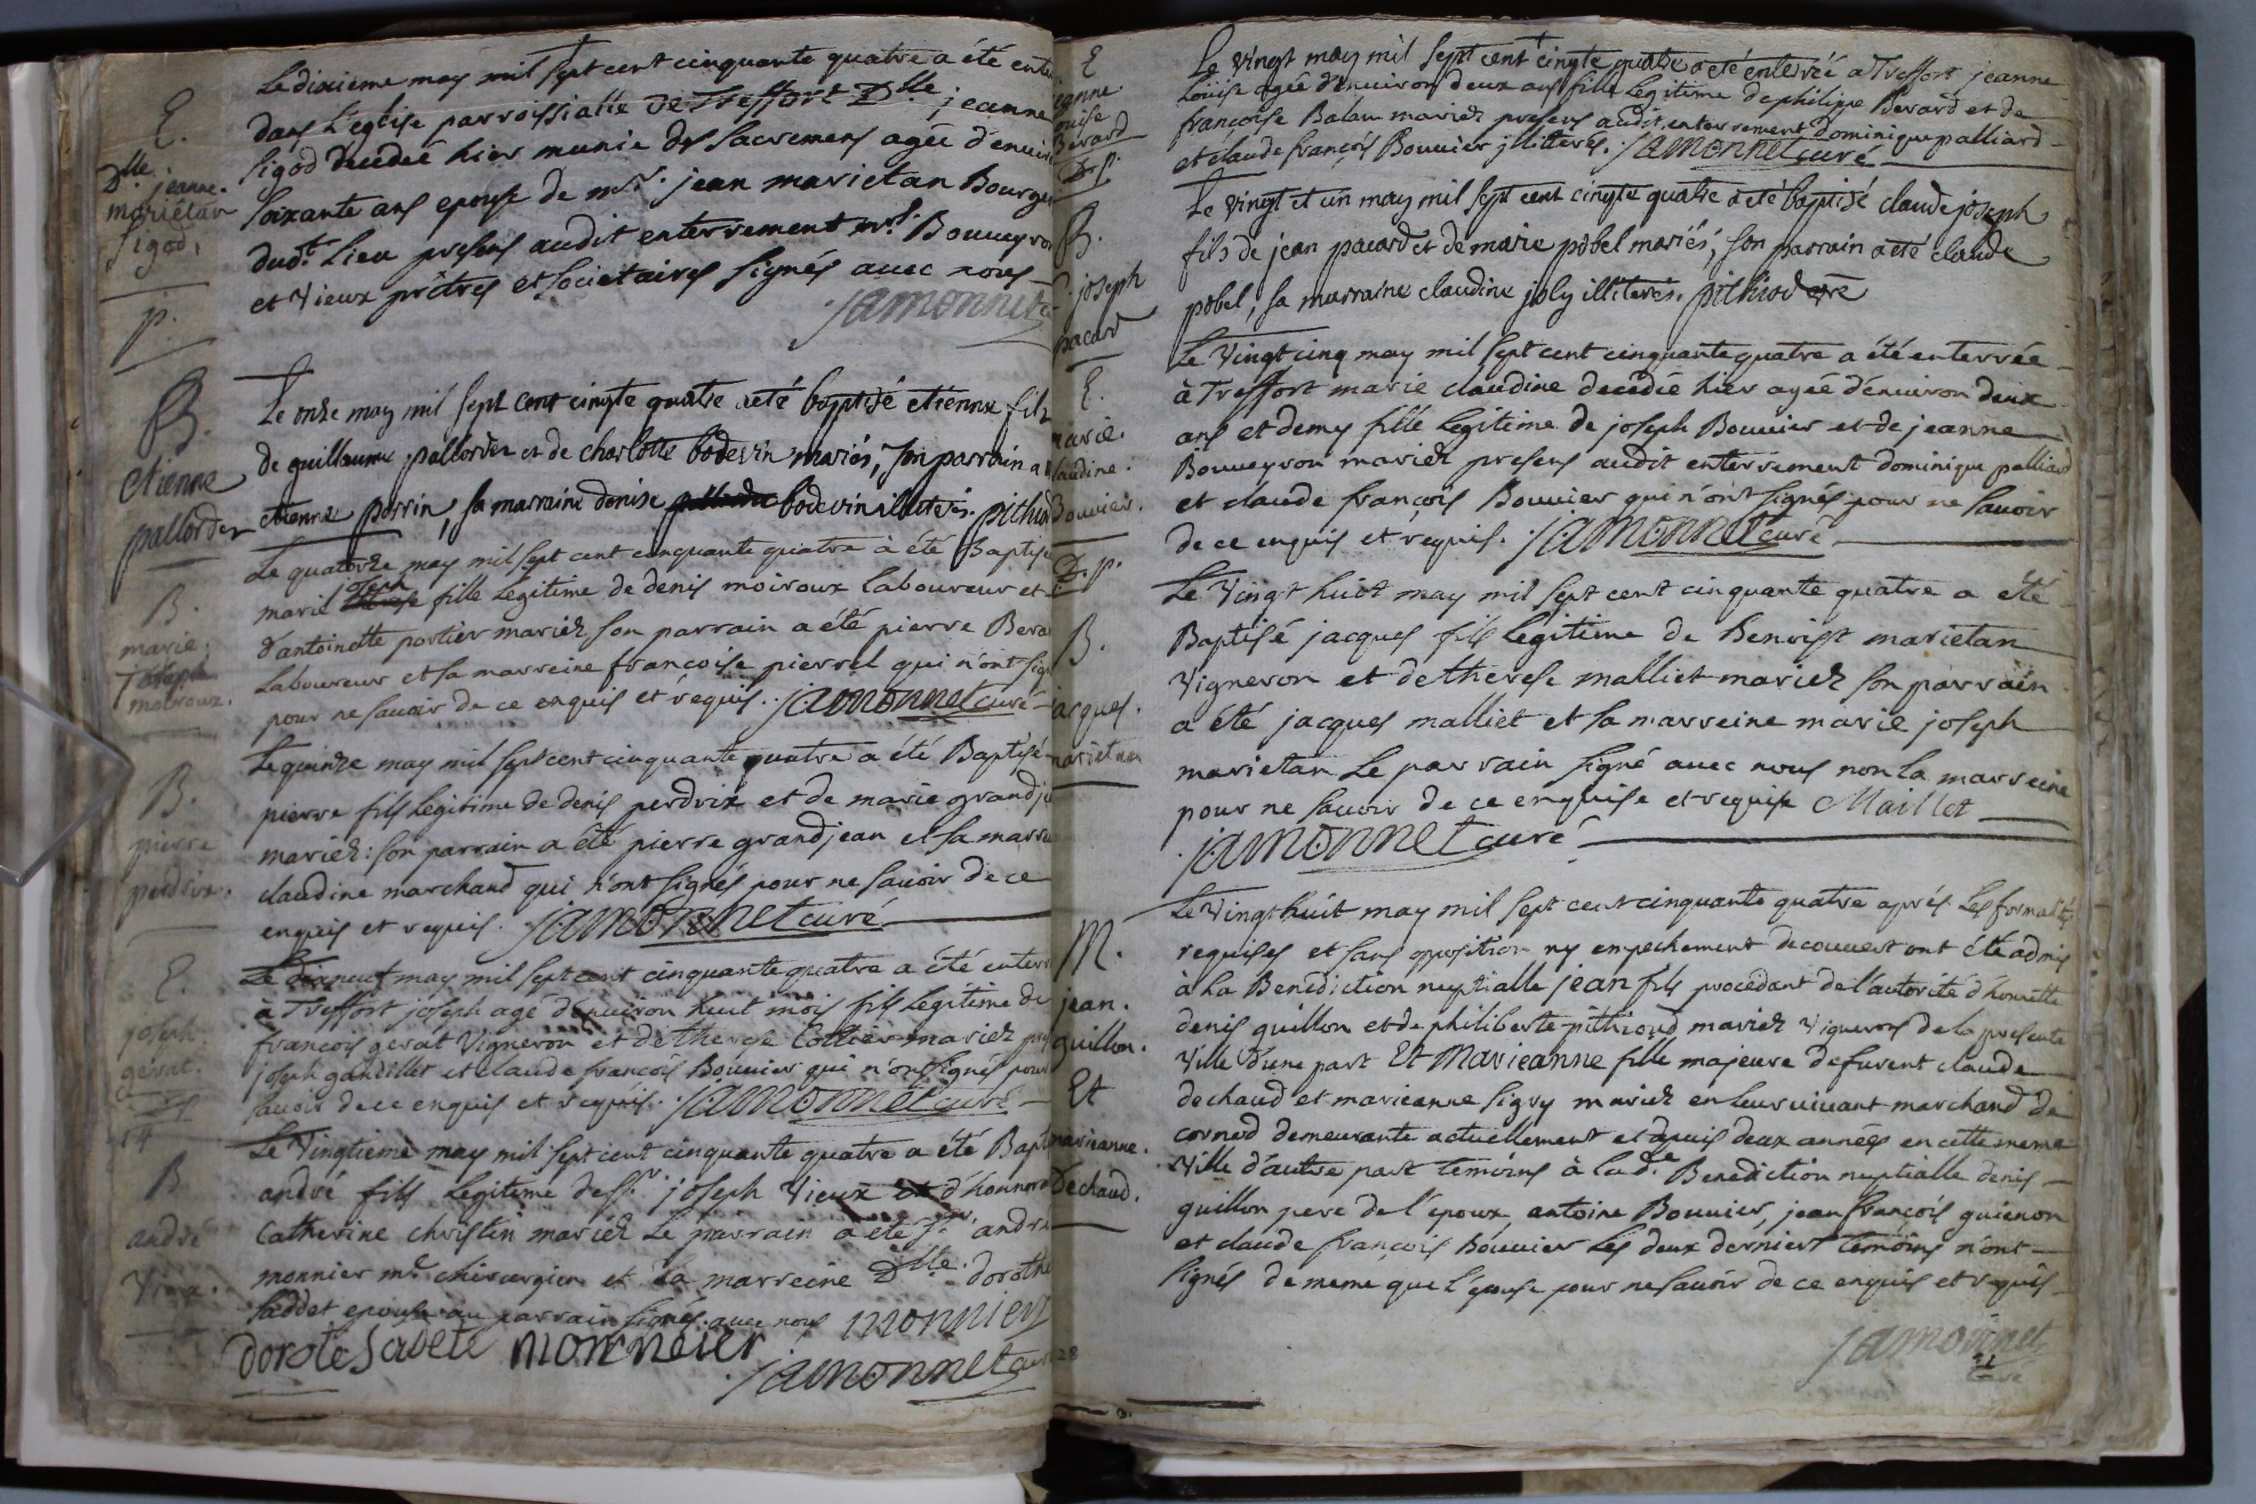 E.
Dlle. jeanne.
mariétan
sigod.
p.
Le dixieme may mil sept cent cinquante quatre a été
dans L'eglise parroissialle de Treffort Dlle. jeanne
sigod decedeé hier munie des sacremens agée
soixante ans epouse de mr. jean marietan
dudt. Lieu presens audit enterrement mrs. Bouveyron
et Vieux prêtres et societaires signés avec nous
jamonnet
B.
etienne
pallordet
Le onze may mil sept cent cinqte quatre a eté baptisé etienne fils
de guillaume pallordet et de charlotte bodevin mariés, son parrain a
etienne perrin, sa marraine denise bodevin illiterés. pithiod
B.
marie.
joseph
moiroux.
Le quatorze may mil sept cent cinquante quatre à été Baptisé
marie joseph fille Legitime de denis moiroux Laboureur et
d'antoinette portier mariez son parrain a été pierre
Laboureur et sa marreine francoise pierrel qui n'ont
pour ne savoir de ce enquis et requis. jamonnet curé
B.
pierre
perdrix.
Le quinze may mil sept cent cinquante quatre a été Baptisé
pierre fils Legitime de denis perdrix et de marie
mariez: son parrain a été pierre grandjean et sa
claudine marchand qui n'ont signés pour ne savoir de ce
enquis et requis. jamonnet curé
E.
joseph
gerat.
14
Le dixneuf may mil sept cent cinquante quatre a été
à Treffort joseph agé d'environ huit mois fils Legitime de
françois gerat Vigneron et de therese Collier mariez
joseph gandillet et claude françois Bouvier qui n'ont signés pour
savoir de ce enquis et requis. jamonnet curé
B
andré
Vieux.
Le Vingtieme may mil sept cent cinquante quatre a été
andré fils Legitime de sr. joseph Vieux et d'honnorée
Catherine christin mariez Le parrain a été sr. andré
monnier me. chirurgien et La marreine Dlle. dorothe
saddet epouse au parrain signés avec nous monnier
dorote sadete monneier
jamonnet
E
jeanne
Louise
Berard
D. p.
Le vingt may mil sept cent cinqte quatre a été enterrée a Treffort jeanne
Loüise agée d'environ deux ans fille Legitime de philippe Berard et de
françoise Balan mariez presens audit enterrement dominique palliard
et claude françois Bouvier illitterés. jamonnet curé
B.
C. joseph
pacard
Le vingt et un may mil sept cent cinqte quatre a eté baptisé claude joseph
fils de jean pacard et de marie pobel mariés, son parrain a été claude
pobel, sa marraine claudine joly illiterés. pithiod
E.
marie.
claudine.
Bouvier.
D. p.
Le Vingt cinq may mil sept cent cinquante quatre a été enterrée
à Treffort marie claudine decedée hier agée d'environ deux
ans et demy fille Legitime de joseph Bouvier et de jeanne
Bouveyron mariez presens audit enterrement dominique palliard
et claude françois Bouvier qui n'ont signés pour ne savoir
de ce enquis et requis. jamonnet curé
B.
jacques.
marietan
Le Vingt huit may mil sept cent cinquante quatre a été
Baptisé jacques fils Legitime de Benoist marietan
Vigneron et de therese malliet mariez son parrain
a été jacques malliet et sa marreine marie joseph
marietan Le parrain signé avec nous non la marreine
pour ne savoir de ce enquise et requise Maillet
jamonnet curé
M.
jean.
guillon.
Et
marieanne.
Dechaud.
Le Vingt huit may mil sept cent cinquante quatre aprés Les formalités
requises et sans opposition ny empechement decouvert ont été admis
à La Benediction nuptialle jean fils procedant de l'autorité d'honnête
denis guillon et de philiberte pithioud mariez Vignerons de La presente
Ville d'une part Et Marieanne fille majeure de furent claude
dechaud et marieanne sigry mariez en leur vivant marchand de
cornod demeurante actuellement et depuis deux années en cette meme
Ville d'autre part temoins à Lade. Benediction nuptialle denis
guillon pere de l'époux, antoine Bouvier, jean françois guienon
et claude françois Bouvier Les deux derniers temoins n'ont
signés de meme que L'épouse pour ne savoir de ce enquis et requis
jamonnet
curé